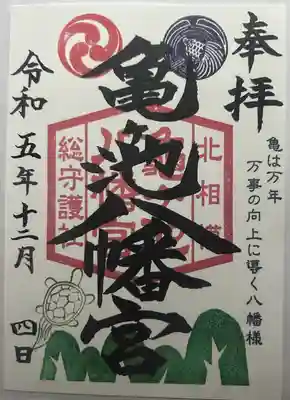 奉拝
亀は万年
万事の向上に導く八幡様
北相模
亀ヶ池
八幡宮
総守護社
亀池八幡宮
令和五年十二月四日